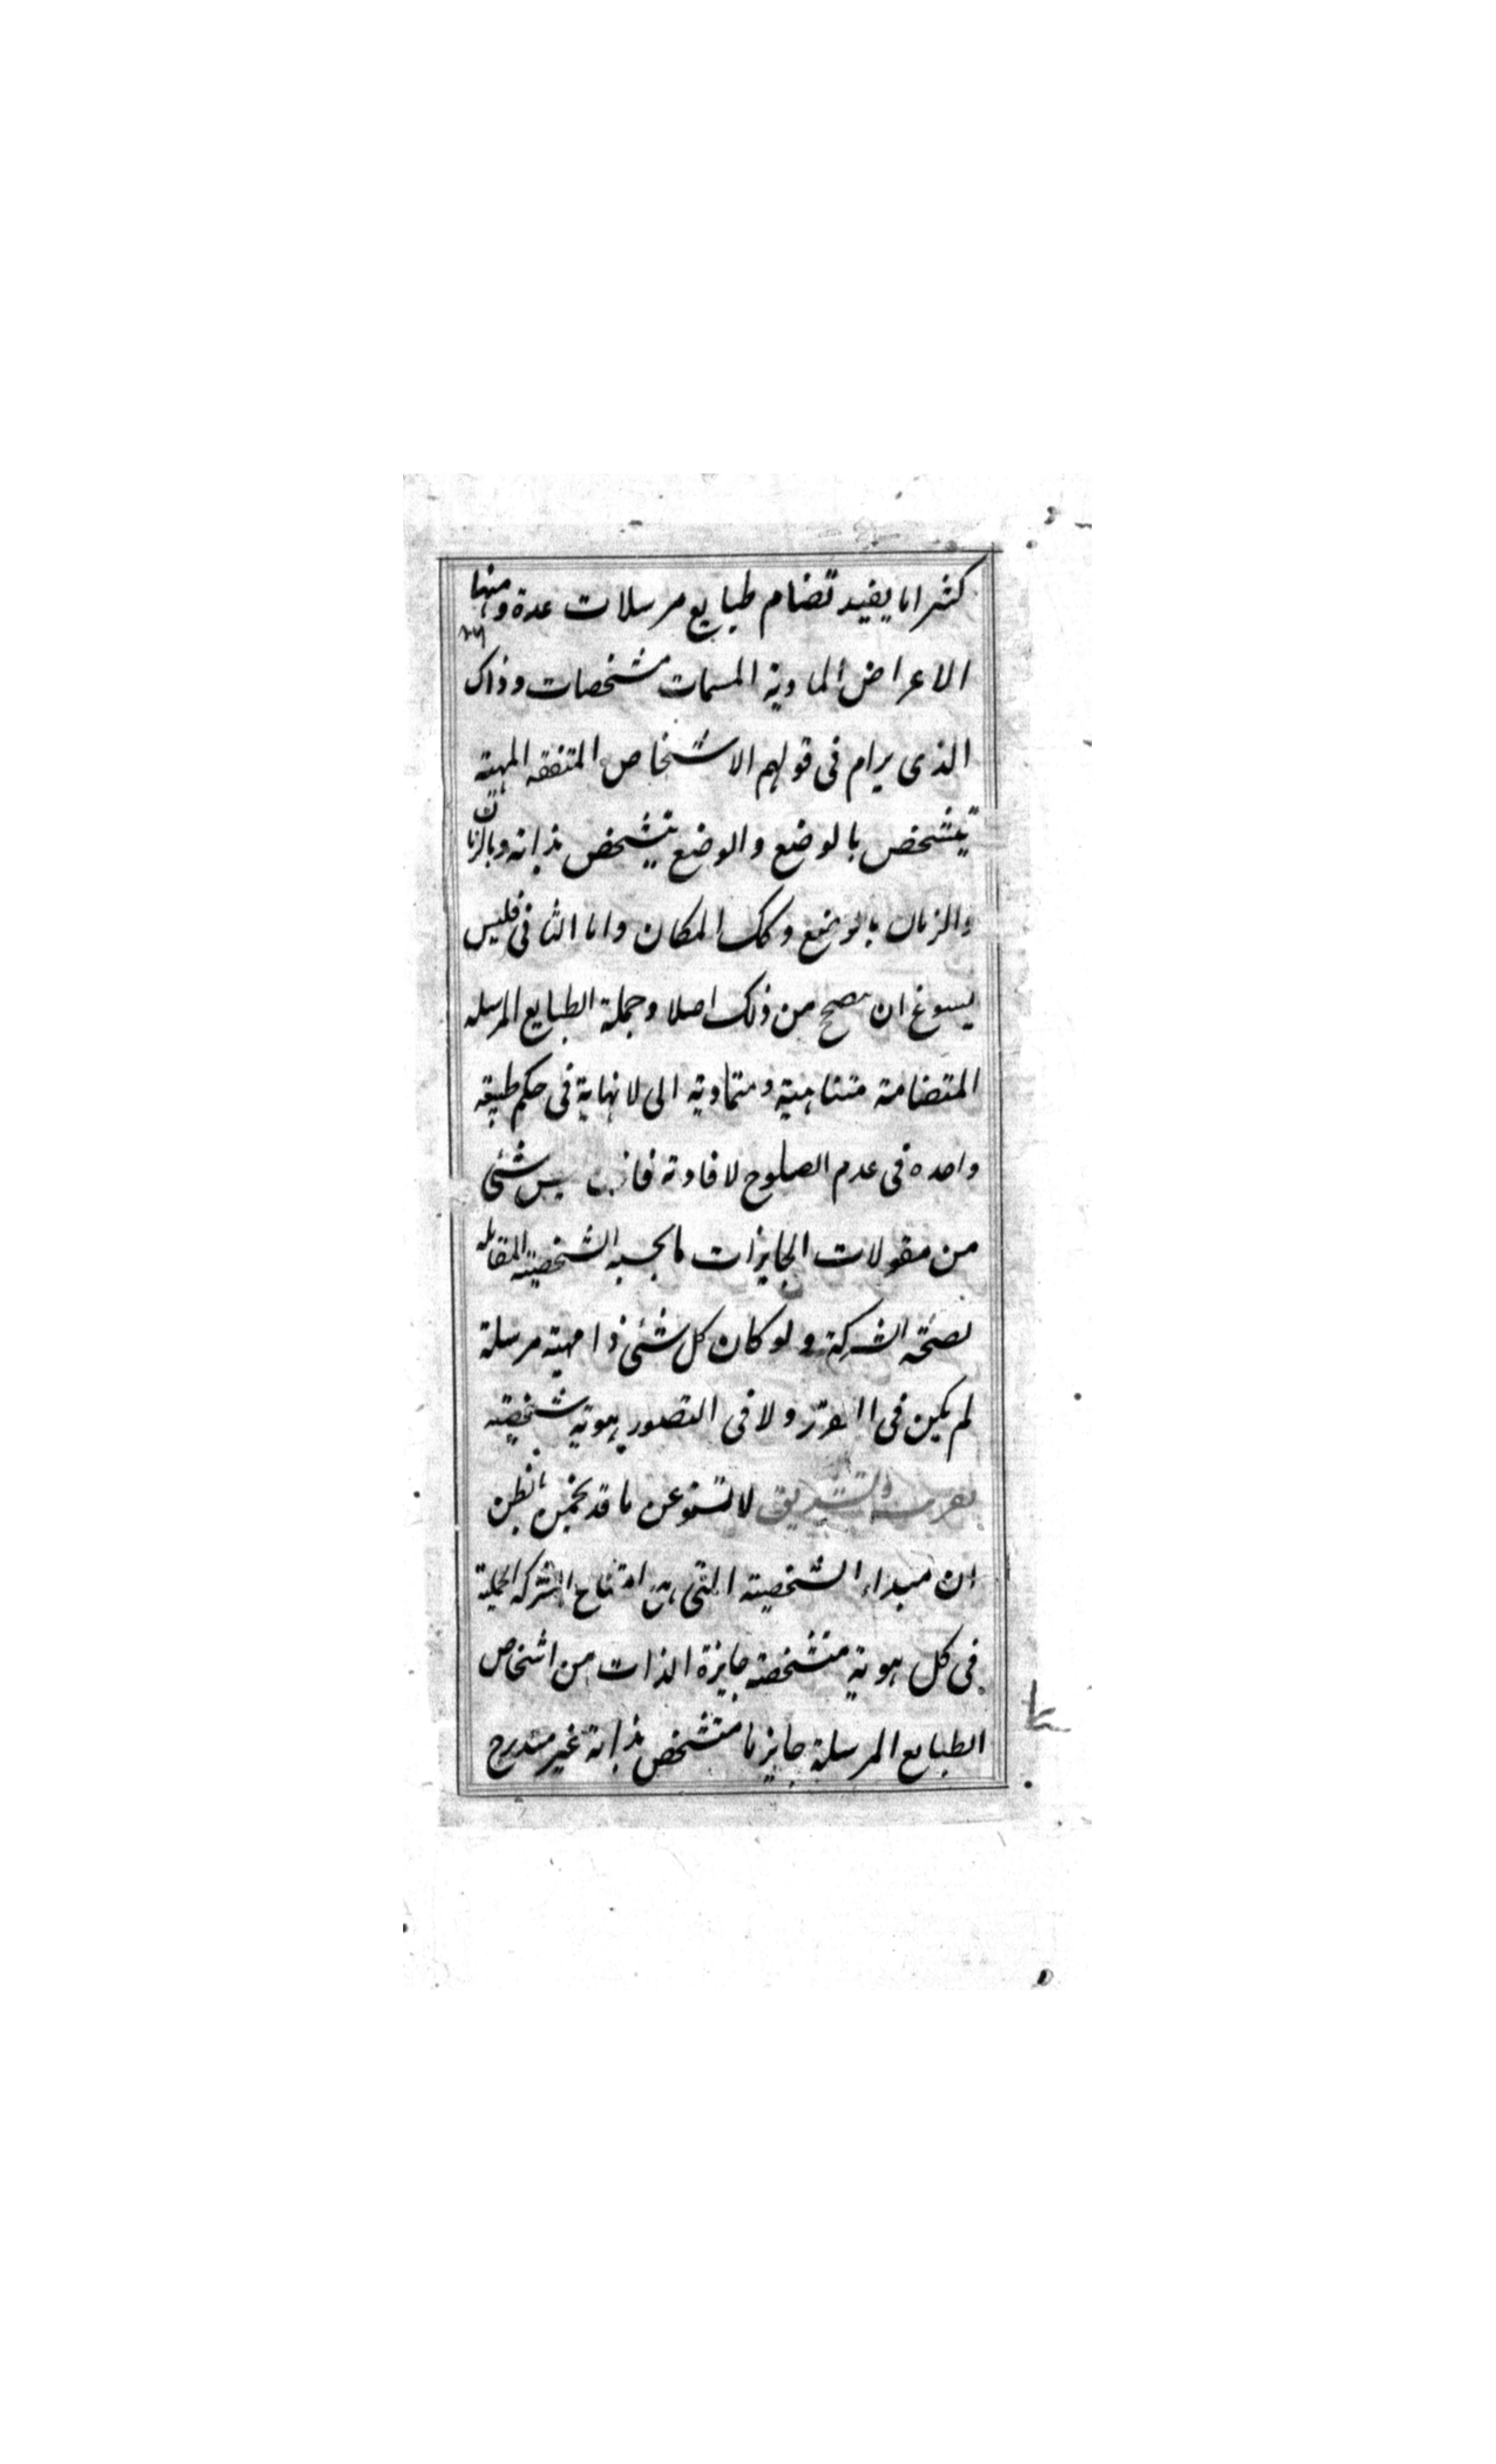 كثيرا ما يفيد تضام طبايع مرسلات عدة ومنها
الاعراض المادية المسمات مشخصات وذاك
الذى يرام فى قولهم الاشخاص المتفقه المهية
يتشخص بالوضع والوضع يتشخص بذاته وبالزمان
والزمان بالوضع وكك المكان واما الثانى فليس
يسوغ ان يصح من ذلك اصلا وجملة الطبايع المرسله
المتضامة متناهية ومتمادية الى لا نهاية فى حكم طبيعة
واحده فى عدم الصلوح لافادته فاذن ليس شئى
من مقولات الجايزات ما بحسبه الشخصية المقابله
لصحة الشركة ولو كان كل شئى ذا مهية مرسلة
لم يكن فى التقرر ولا فى التصور هوية شخصية
لا تسنوعن ما قد يخمن بالظن
ان مبداء الشخصية التى هى امتناع الشركة الحملية
فى كل هوية متشخصة جايزة الذات من اشخاص
الطبايع المرسلة جايز ما متشخص بذاته غير مندرج